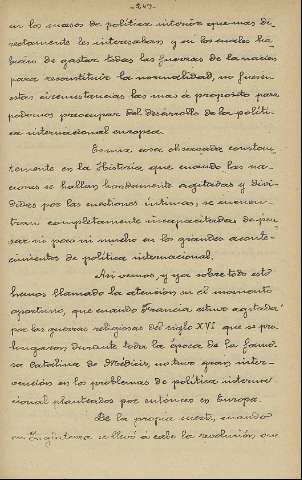 -247-
en los sucesos de política interior que mas di-
rectamente les interesaban y en los cuales ha-
bian de gastar todas las fuerzas de la nación
para reconstituir la normalidad, no fueron
estas circunstancias las mas á propósito para
podernos preocupar del desarrollo de la políti-
ca internacional europea.
Es una cosa observada constan-
temente en la Historia que cuando las na-
ciones se hallan hondamente agitadas y divi-
didas por las cuestiones íntimas, se encuen-
tran completamente incapacitadas de pen-
sar ni poco ni mucho en los grandes aconte-
cimientos de política internacional.
Así vemos, y ya sobre todo esto
hemos llamado la atención en el momento
oportuno, que cuando Francia estuvo agitada
por las guerras religiosas del siglo XVI que se pro-
longaron durante toda la época de la famo-
sa Catalina de Médicis, no tuvo gran inter-
vención en los problemas de política interna-
cional planteados por entonces en Europa.
De la propia suerte, cuando
en Inglaterra se llevó á cabo la revolución, que